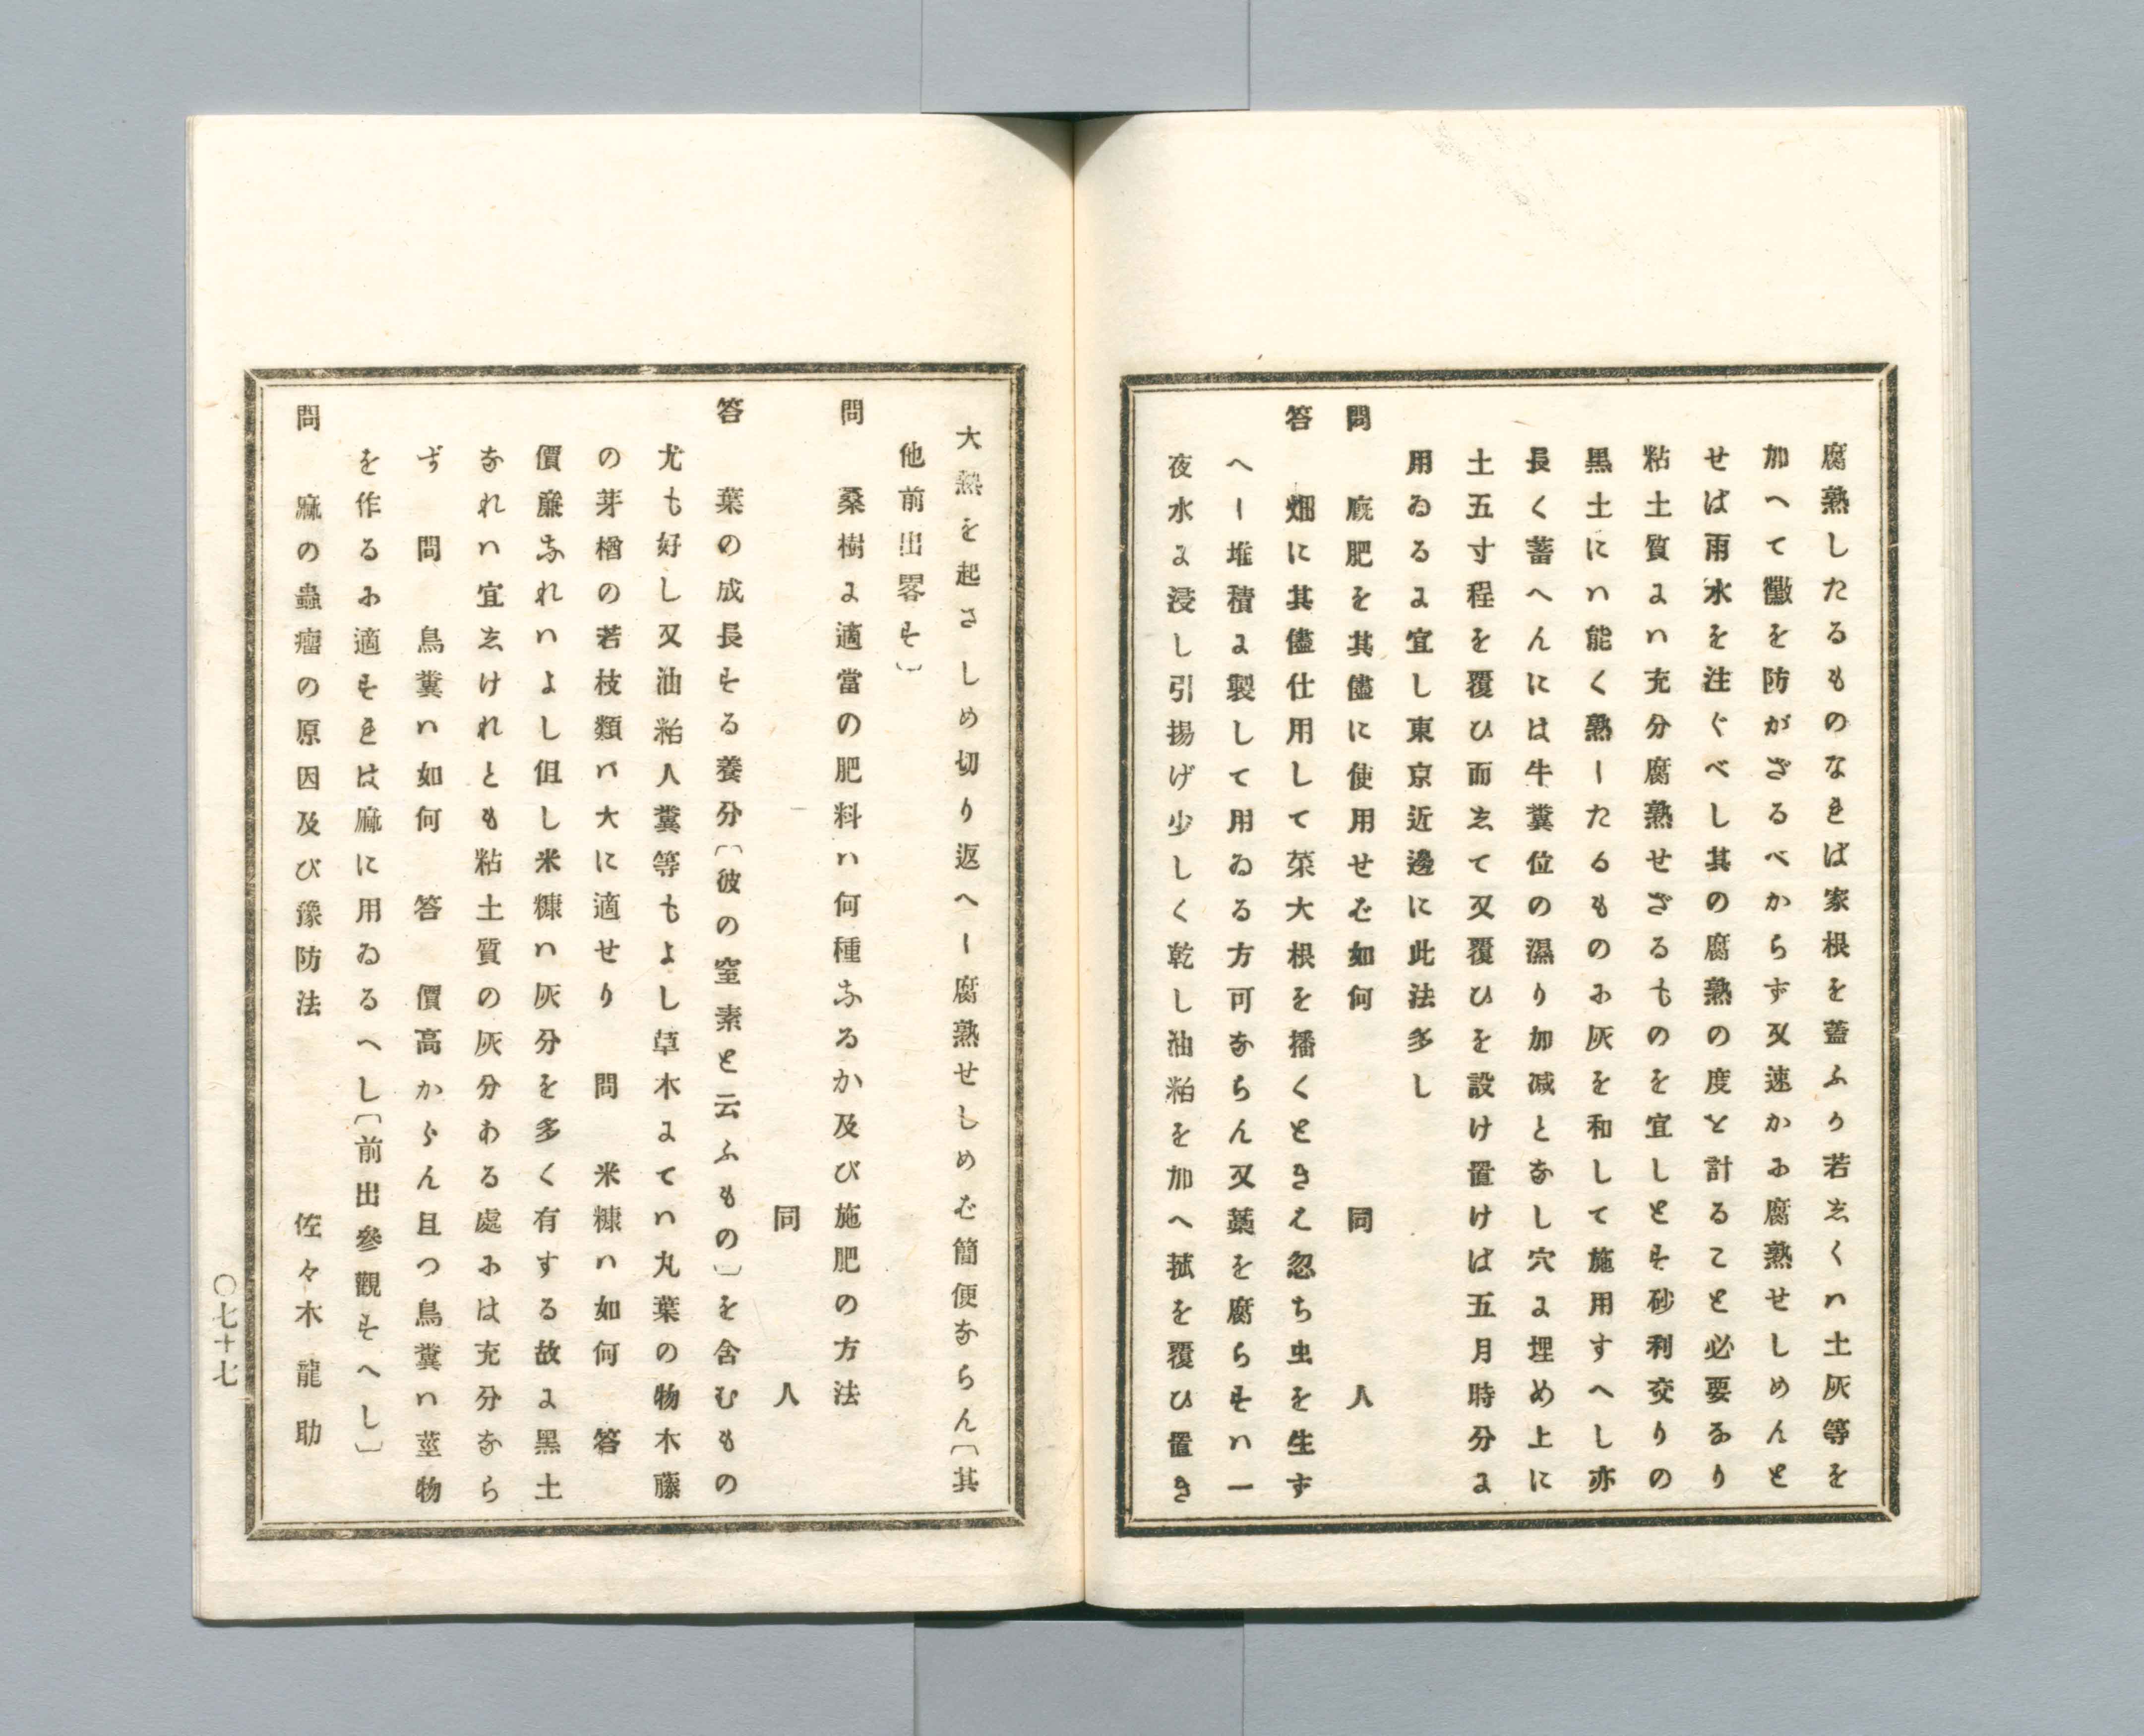 腐熟したるものなきば家根を蓋ふり若ゑくハ土灰等を
加へて黴を防がざるべからず又速かに腐熟せしめんと
せば雨水を注ぐべし其の腐熟の度を計ること必要なり
粘土質にハ充分腐熟せざるものを宜しとす砂利交りの
黒土にハ能く熟したるものに灰を和して施用すへし亦
長く蓄へんには牛糞位の濕り加减となし穴に埋め上に
土五寸程を覆ひ而ゑて又覆ひを設け置けば五月時分に
用ゐるに宜し東京近邊に此法多し
問　廐肥を其儘に使用せば如何　同　人
答　畑に其儘仕用して菜大根を播くときえ忽ち虫を生ず
へし堆積に製して用ゐる方可ならん又藁を腐らすハ一
夜水に浸し引揚げ少しく乾し油粕を加へ菰を覆ひ置き
大熱を起さしめ切り返へし腐熟せしめば簡便ならん〔其
他前出畧す〕
問　桑樹に適當の肥料ハ何種なるか及び施肥の方法
同　人
答　葉の成長する養分〔彼の窒素と云ふもの〕を含むもの
尤も好し又油粕人糞等もよし草木にてハ丸葉の物木藤
の芽楢の若枝類ハ大に適せり　問　米糠ハ如何　答
價廉なれハよし但し米糠ハ灰分を多く有する故に黒土
なれハ宜ゑけれとも粘土質の灰分ある處には充分なら
ず　問　鳥糞ハ如何　答　價高からん且つ鳥糞ハ莖物
を作るに適すきは麻に用ゐるへし〔前出參觀すへし〕
問　麻の蟲瘤の原因及び豫防法　佐々木龍助
〇七十七